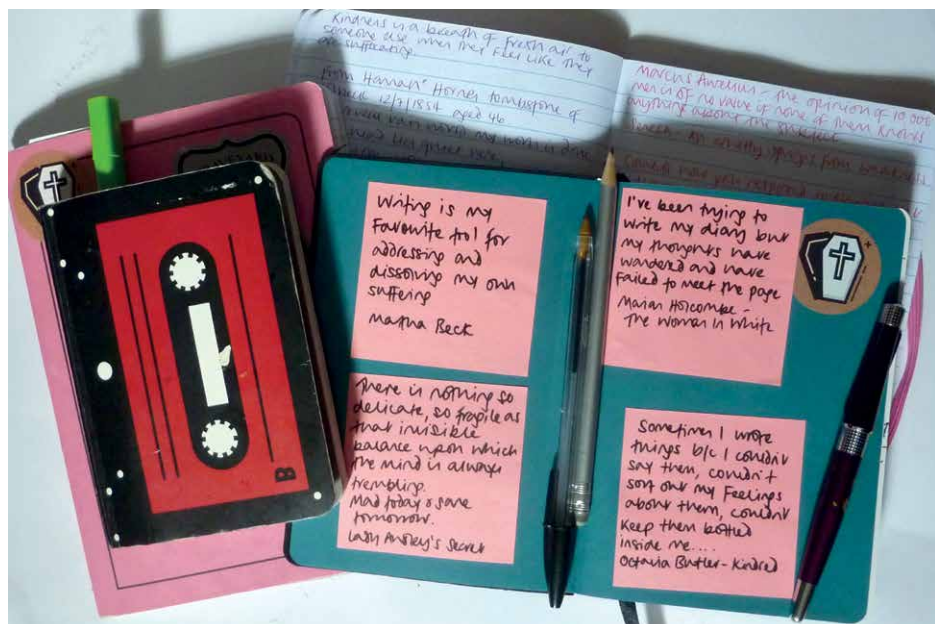 Kindness is a breath of fresh air to
someone else when they feel like they
are suffocating
From Hannah Horner tombstone of
12/7/1854 aged 46
Marcus Aurelius - the opinion of 10,000
men is of no value if none of them knows
anything about the subject
Seneca -
from
Writing is my
favourite tool for
addressing and
dissolving my own
suffering
Martha Beck
There is nothing so
delicate, so fragile as
that invisible
balance upon which
the mind is always
trembling.
Mad today & sane
tomorrow.
Lady Audley's Secret
I've been trying to
write my diary but
my thoughts have
wandered and have
failed to meet the page
Marian Holcombe -
The Woman in White
Sometimes I wrote
things b/c I couldn't
say them, couldn't
sort out my feelings
about them, couldn't
keep them bottled
inside me....
Octavia Butler - Kindred
B